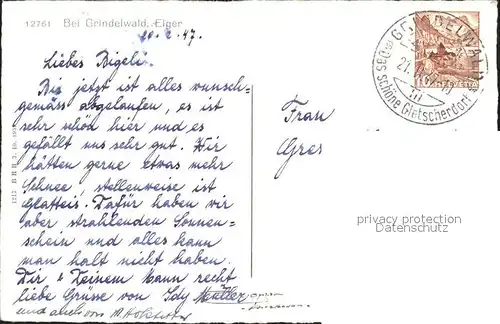 12761 Bei Grindelwald, Eiger
Liebes Bigeli.
Bis jetzt ist alles wunsch-
gemäss abgelaufen, es ist
sehr schön hier und es
gefällt uns sehr gut. Wir
hätten gerne etwas mehr
Schnee, stellenweise ist
Glatteis. Dafür haben wir
aber strahlenden Sonnen-
schein und alles kann
man halt nicht haben.
Dir & Deinem Mann recht
liebe Grüsse von Idy Müller
und auch von
Frau
Gres
GRINDELWALD
das schöne Gletscherdorf
privacy protection
Datenschutz